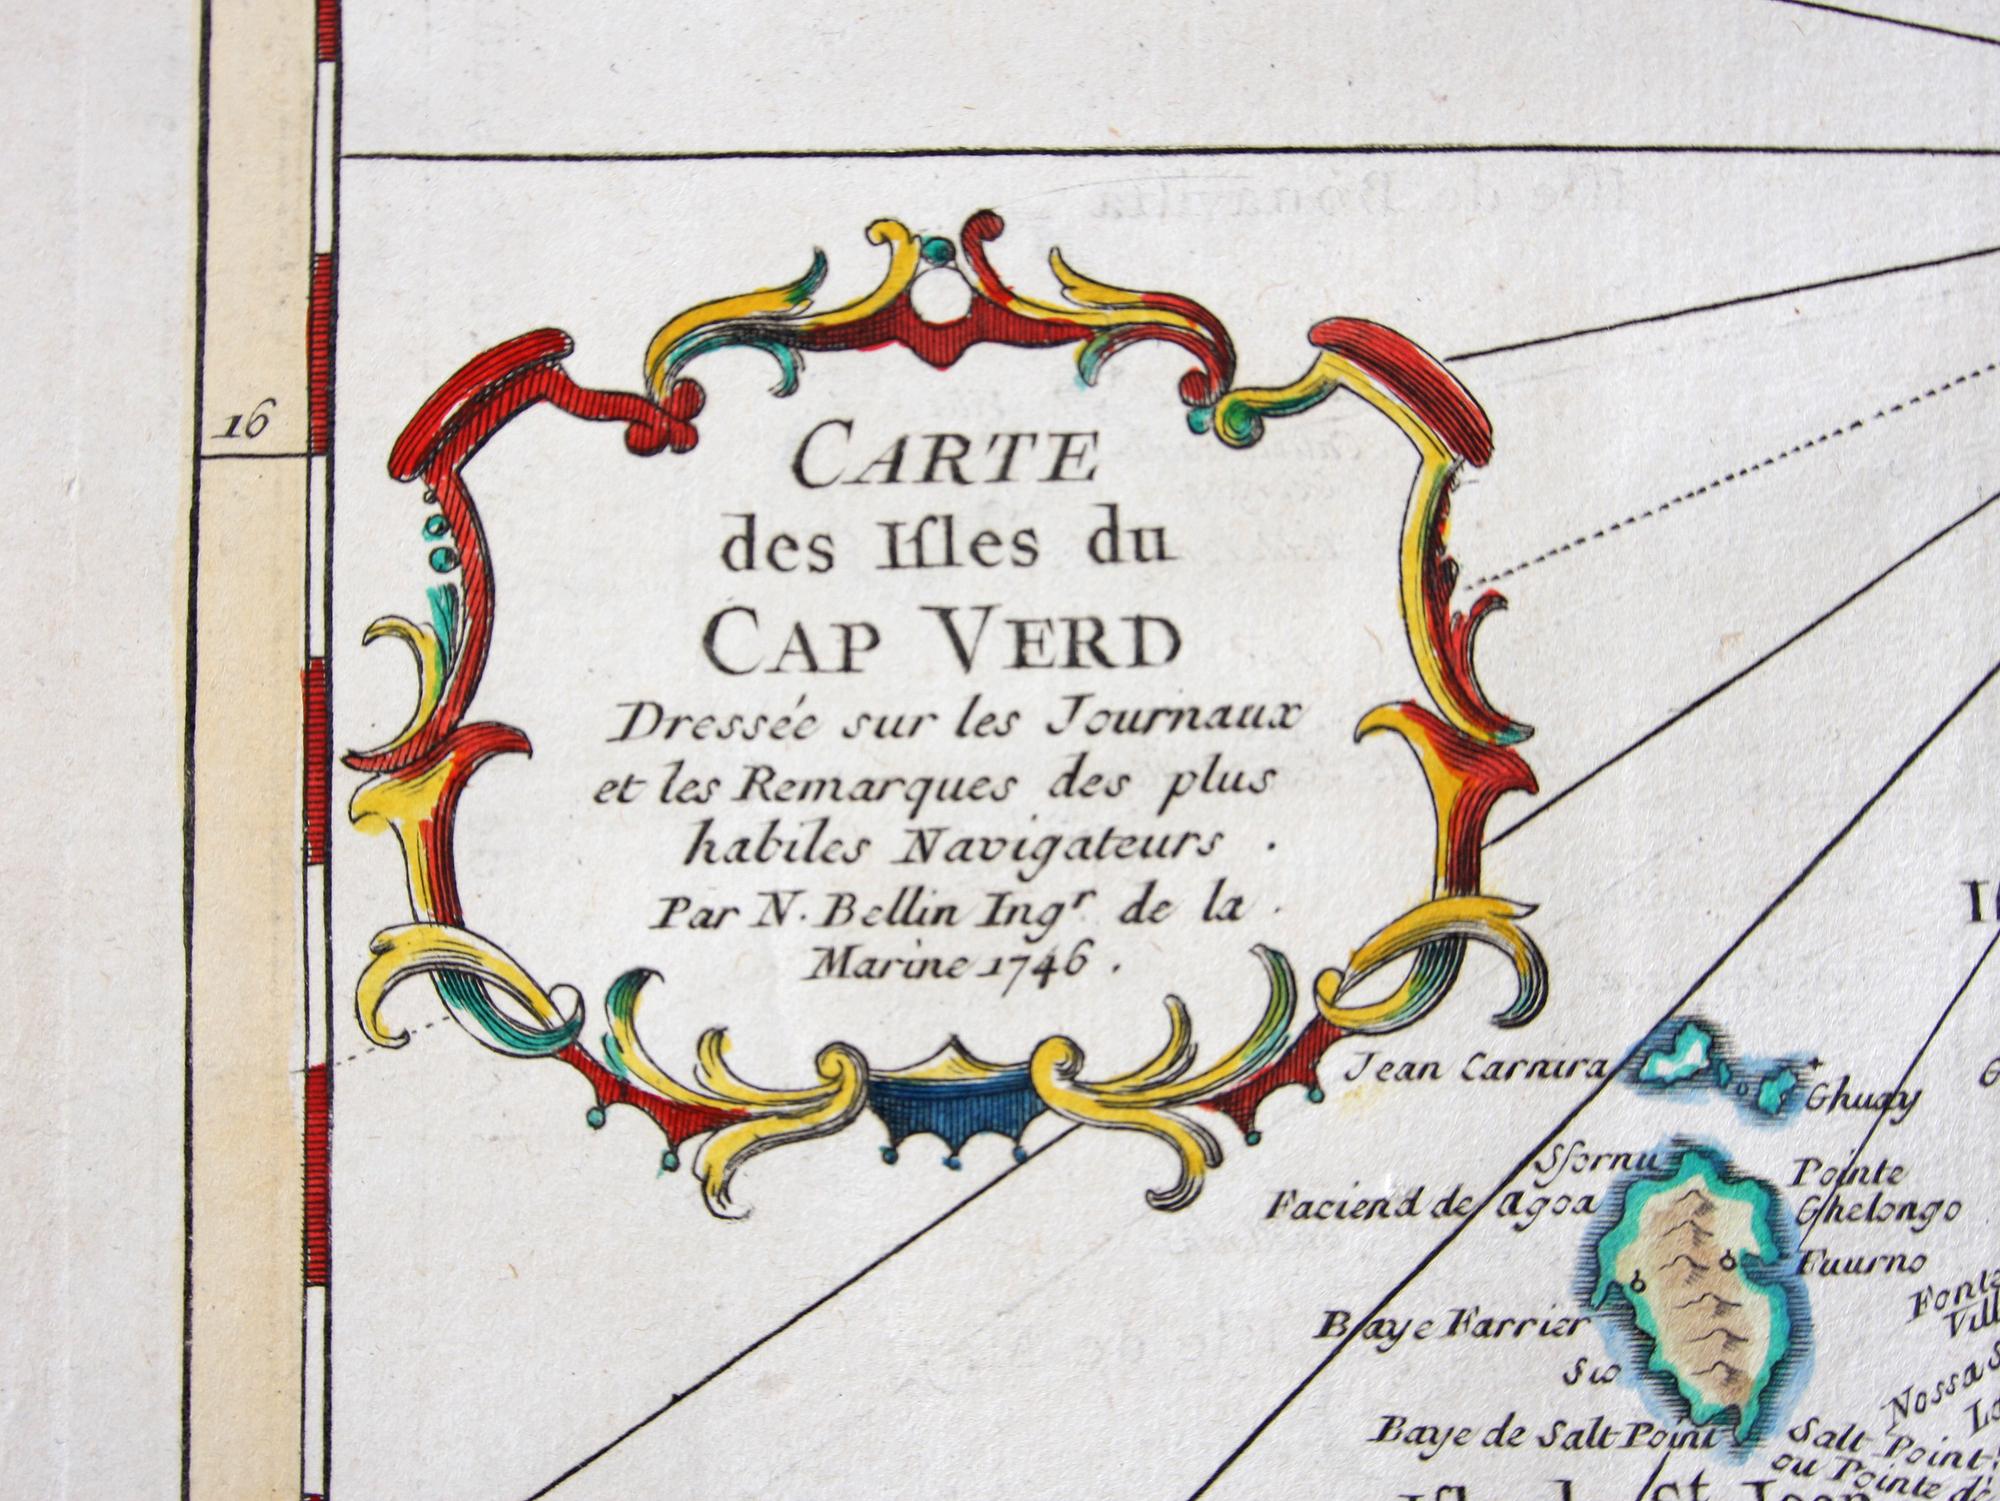 16
CARTE
des Iſles du
CAP VERD
Dressée sur les Journaux
et les Remarques des plus
habiles Navigateurs .
Par N. Bellin Ingr. de la .
Marine 1746 .
Jean Carnira
Ghuay
Sfornu
Faciend de agoa
Pointe
Ghelongo
Fuurno
Baye Farrier
Sio
Baye de Salt Point
Salt Point
ou Pointe de
Nossa S